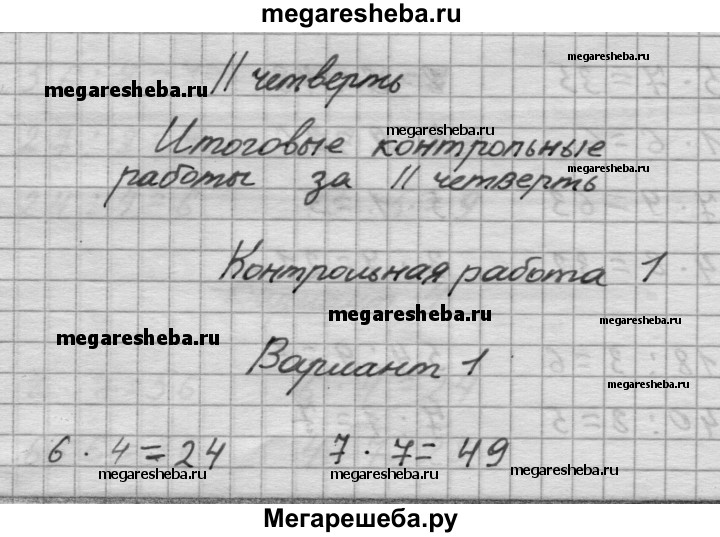 megaresheba.ru
megaresheba.ru
II четверть
megaresheba.ru
megaresheba.ru
Итоговые контрольные
megaresheba.ru
работы за II четверть
Контрольная работа 1
megaresheba.ru
megaresheba.ru
megaresheba.ru
Вариант 1
megaresheba.ru
6 · 4 = 24 7 · 7 = 49
megaresheba.ru megaresheba.ru megaresheba.ru
Мегарешеба.ру